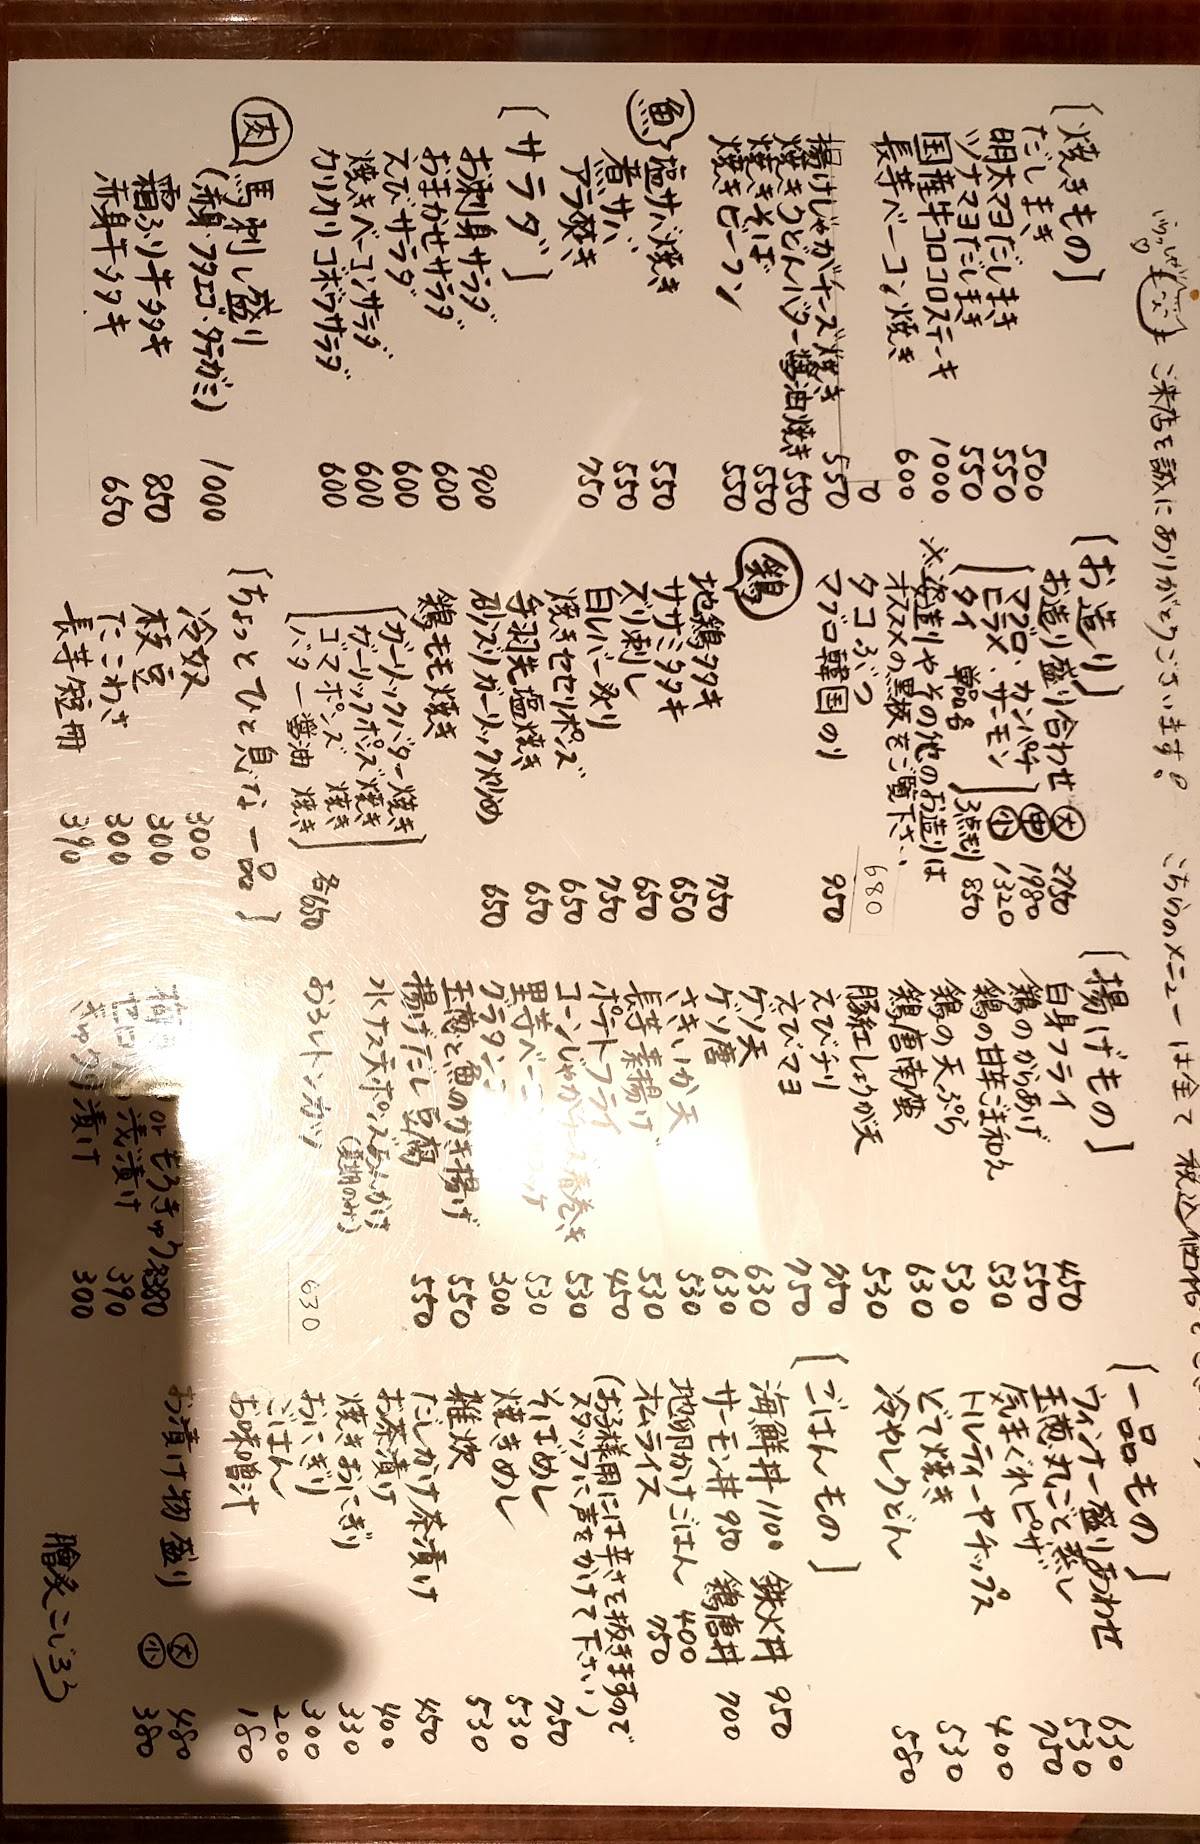 ご来店を誠にありがとうございます。 こちらのメニューは全て税込価格
[焼きもの]
だしまき 500
明太マヨだしまき 550
ツナマヨだしまき 550
国産牛コロコロステーキ 1000
長芋ベーコン焼き 600
揚げじゃがチーズ焼き 550
焼きうどんバター醤油焼き 550
焼きそば 550
焼きビーフン 550
魚
塩サバ焼き 550
煮サバ 550
アラ焼き 750
[サラダ]
お刺身サラダ 900
おまかせサラダ 600
えびサラダ 600
焼きベーコンサラダ 600
カリカリゴボウサラダ 600
肉
馬刺し盛り 1000
(赤身・フタエゴ・タテガミ)
霜ふり牛タタキ 850
赤身牛タタキ 650
[お造り]
お造り盛り合わせ 大 2750
[マグロ、カンパチ 中 1980
ヒラメ、サーモン] 小 1320
タイ 単品各 3点盛り 850
※姿造りやその他のお造りは
オススメの黒板をご覧下さい
タコぶつ 680
マグロ韓国のり 950
鶏
地鶏タタキ 750
ササミタタキ 650
ズリ刺し 650
白レバー炙り 750
焼きセセリポンズ 650
手羽先塩焼き 650
砂ズリガーリック炒め 650
鶏モモ焼き
[ガーリックバター焼き
ガーリックポンズ焼き
ゴマポンズ 焼き
バター醤油 焼き] 各650
[ちょっとひと息な一品]
冷奴 300
枝豆 300
たこわさ 300
長芋短冊 390
[揚げもの]
白身フライ 450
鶏のからあげ 550
鶏の甘辛ごま和え 530
鶏の天ぷら 530
鶏唐南蛮 630
豚紅しょうが天 530
えびチリ 950
えびマヨ 750
ゲソ天 630
ゲソ唐 630
さきいか天 530
長芋素揚げ 530
ポテトフライ 450
コーンじゃがチーズ春巻き 530
里芋ベーコンコロッケ 530
グラタンコロッケ 300
玉葱と魚のかき揚げ 550
揚げだし豆腐 550
水ナス天ポンズあんかけ
(夏期のみ)
おろしトンカツ 630
もろきゅう 各380
浅漬け 390
きゅうり漬け 300
[一品もの]
ウィンナー盛りあわせ 630
玉葱丸ごと蒸し 530
気まぐれピザ 750
トルティーヤチップス 400
どて焼き 530
冷やしうどん 580
[ごはんもの]
海鮮丼 1100 鉄火丼 950
サーモン丼 950 鶏唐丼 700
地卵かけごはん 400
オムライス 750
(お子様用には辛さを抜きますので
スタッフに声をかけて下さい)
そばめし 750
焼きめし 530
雑炊 530
だしかけ茶漬け 450
お茶漬け 400
焼きおにぎり 330
おにぎり 300
ごはん 200
お味噌汁 180
お漬け物盛り 大 480
小 380
膾炙こじろう